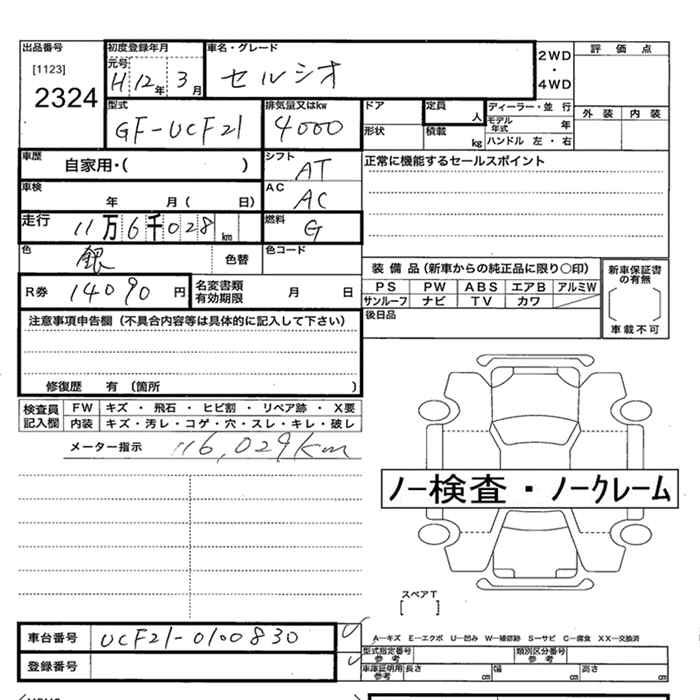 出品番号 初度登録年月 車名・グレード 2WD・4WD 評価点
[1123] 元号 H12年3月 セルシオ
2324
型式 排気量又はkw ドア 定員 人 ディーラー・並行 外装 内装
GF-UCF21 4000 形状 積載 kg モデル年式 年
ハンドル 左・右
車歴 自家用・( ) シフト AT 正常に機能するセールスポイント
車検 年 月( 日) AC AC
走行 11万6千028km 燃料 G
色 銀 色替 色コード
装備品(新車からの純正品に限り○印) 新車保証書の有無
R券 14090円 名変書類有効期限 月 日 PS PW ABS エアB アルミW
サンルーフ ナビ TV カワ
注意事項申告欄(不具合内容等は具体的に記入して下さい) 後日品 車載不可
修復歴 有(箇所 )
検査員記入欄 FW キズ・飛石・ヒビ割・リペア跡・X要
内装 キズ・汚レ・コゲ・穴・スレ・キレ・破レ
メーター指示 116,029km
ノー検査・ノークレーム
スペアT
[ ]
車台番号 UCF21-0100830
A—キズ E—エクボ U—凹み W—補修跡 S—サビ C—腐食 XX—交換済
型式指定番号 参考 類別区分番号 参考
登録番号 車庫証明用 参考 長さ cm 幅 cm 高さ cm